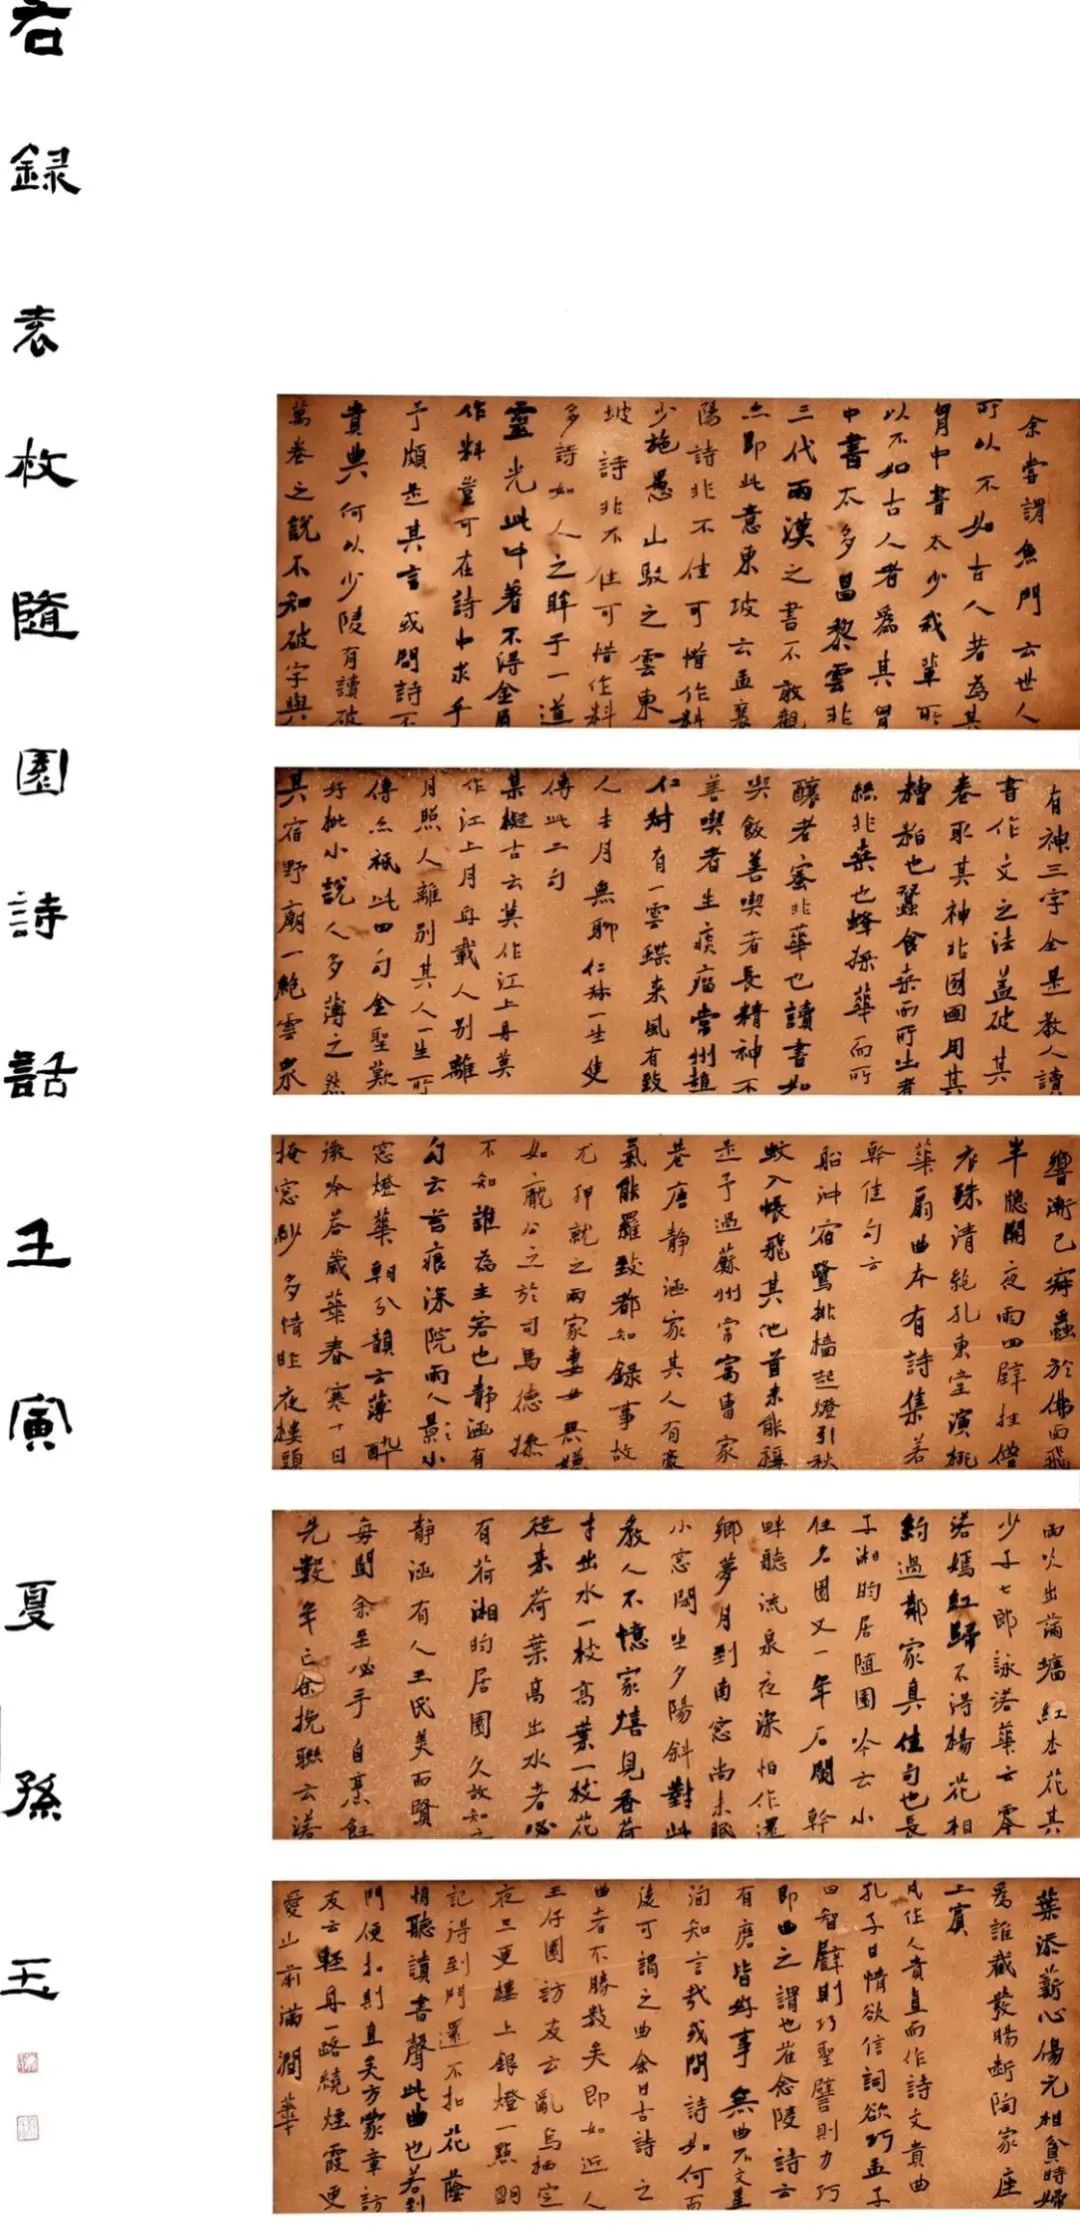 余嘗謂魚門云世人
可以不如古人者為其
胷中書太少我輩所
以不如古人者為其胷
中書太多昌黎云非
三代兩漢之書不敢觀
亦即此意東坡云孟襄
陽詩非不佳可惜作料
少施愚山駁之云東
坡詩非不佳可惜作料
多詩如人之眸子一道
靈光此中著不得金屑
作料豈可在詩中求乎
予頗是其言或問詩不
貴典何以少陵有讀破
萬卷之說不知破字與
有神三字全是教人讀
書作文之法蓋破其
卷取其神非囫圇用其
糟粕也蠶食桑而所出者
絲非桑也蜂採華而所
釀者蜜非華也讀書如
喫飯善喫者長精神不
善喫者生痰瘤常州趙
仁叔有一云蝶来風有致
人去月無聊仁叔一生隻
傳此二句
某檟古云莫作江上舟莫
作江上月舟載人別離
月照人離別其人一生所
傳亦祇此四句金聖歎
好批小說人多薄之然
其宿野廟一絕雲眾
響漸已寂蟲於佛面飛
半牕關夜雨四壁挂僧
衣殊清絕孔東堂演桃
華扇曲本有詩集若
幹佳句云
船沖宿鷺排檣起燈引秋
蚊入帳飛其他首未能稱
是予過蘇州常寓曹家
巷唐靜涵家其人有豪
氣能羅致都知錄事故
尤狎就之兩家妻女無嫌
如龐公之於司馬德操
不知誰為主客也靜涵有
句云苔痕深院雨人影小
窓燈華朝分韻云薄醉
微吟答歲華春寒十日
掩窓紗多情昨夜樓頭
雨吹出滿墻紅杏花其
少子七郎詠落華云零
落嫣紅歸不得楊花相
約過鄰家真佳句也長
子湘昀居随園吟云小
住名園又一年石闌幹
畔聽流泉夜深怕作還
鄉夢月到南窓尚未眠
小窓閑坐夕陽斜對此
教人不憶家嬉見香荷
才出水一枝高葉一枝花
從来荷葉高出水者必
有荷湘昀居園久故知之
靜涵有人王氏美而賢
每聞余至必手自烹飪
先數年亡余挽聯云落
葉添薪心傷元相貧時婦
為誰截髮腸斷陶家座
上賓
凡作人貴直而作詩文貴曲
孔子曰情欲信詞欲巧孟子
曰智譬則巧聖譬則力巧
即曲之謂也崔念陵詩云
有磨皆好事無曲不文星
洵知言哉或問詩如何而
後可謂之曲余曰古詩之
曲者不勝數矣即如近人
王仔園訪友云亂烏栖定
夜三更樓上銀燈一點明
記得到門還不扣花蔭
悄聽讀書聲此曲也若到
門便扣則直矣方蒙章訪
友云輕舟一路繞煙霞更
愛山前滿澗華
右録袁枚隨園詩話壬寅夏孫玉